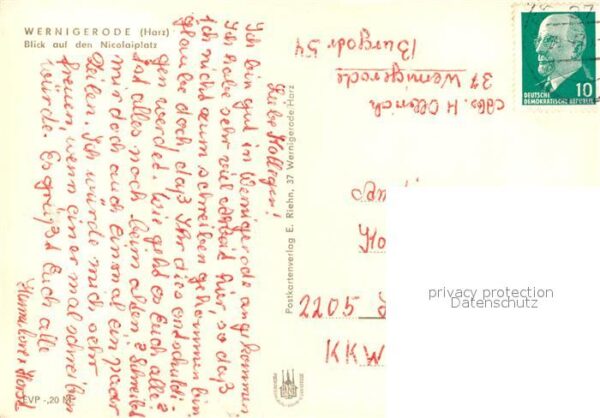 WERNIGERODE (Harz)
Blick auf den Nicolaiplatz
Liebe Kollegen!
Ich bin gut in Wernigerode angekommen
Ich habe sehr viel Arbeit hier, so daß
ich nicht zum schreiben gekommen bin.
glaube doch, daß Ihr dies entschuldi-
gen werdet. Wie geht es Euch alle?
Ist alles noch beim alten? Schreibt
mir doch auch einmal ein paar
Zeilen. Ich würde mich sehr
freuen, wenn einer mal schreiben
würde. Es grüßt Euch alle
Horst
EVP -,20 M
Postkartenverlag E. Riehn, 37 Wernigerode-Harz
Abs. H. Olbrich
37 Wernigerode
Burgstr 54
2205
KKW
DEUTSCHE
DEMOKRATISCHE REPUBLIK
10
privacy protection
Datenschutz